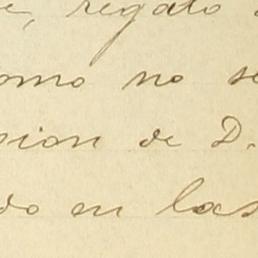 e, regalo
omo no se
sion de D.
do en las